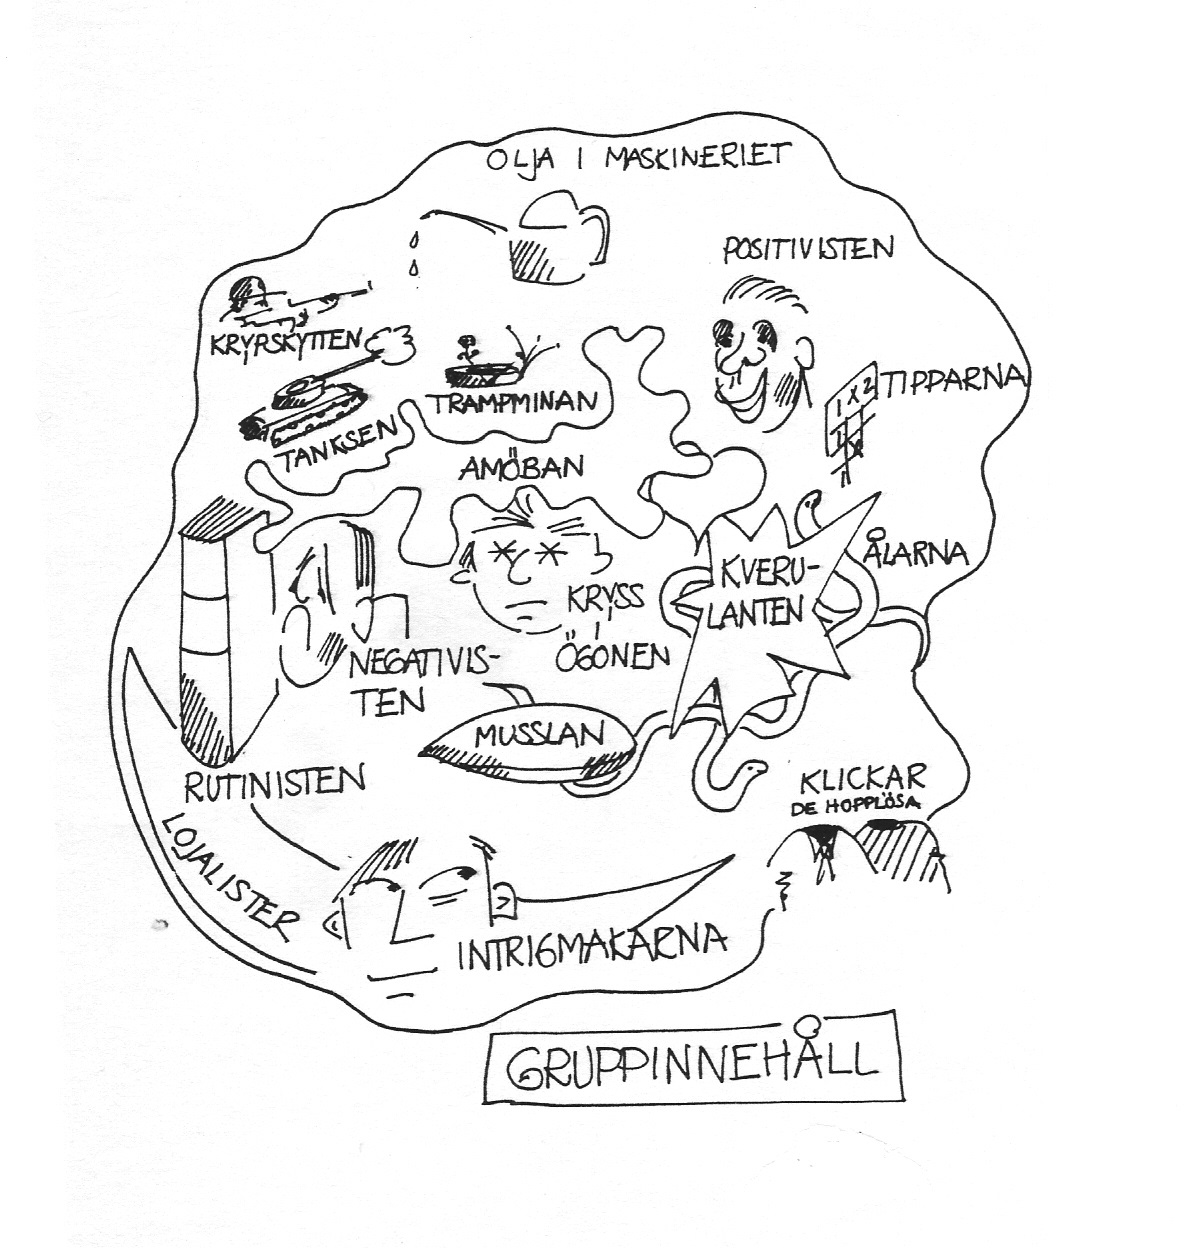 OLJA I MASKINERIET
POSITIVISTEN
KRYPSKYTTEN
TRAMPMINAN
1 X 2
TIPPARNA
TANKSEN
AMÖBAN
ÅLARNA
KVERU-
LANTEN
KRYSS
ÖGONEN
NEGATIVIS-
TEN
MUSSLAN
RUTINISTEN
KLICKAR
DE HOPPLÖSA
LOJALISTER
INTRIGMAKARNA
GRUPPINNEHÅLL